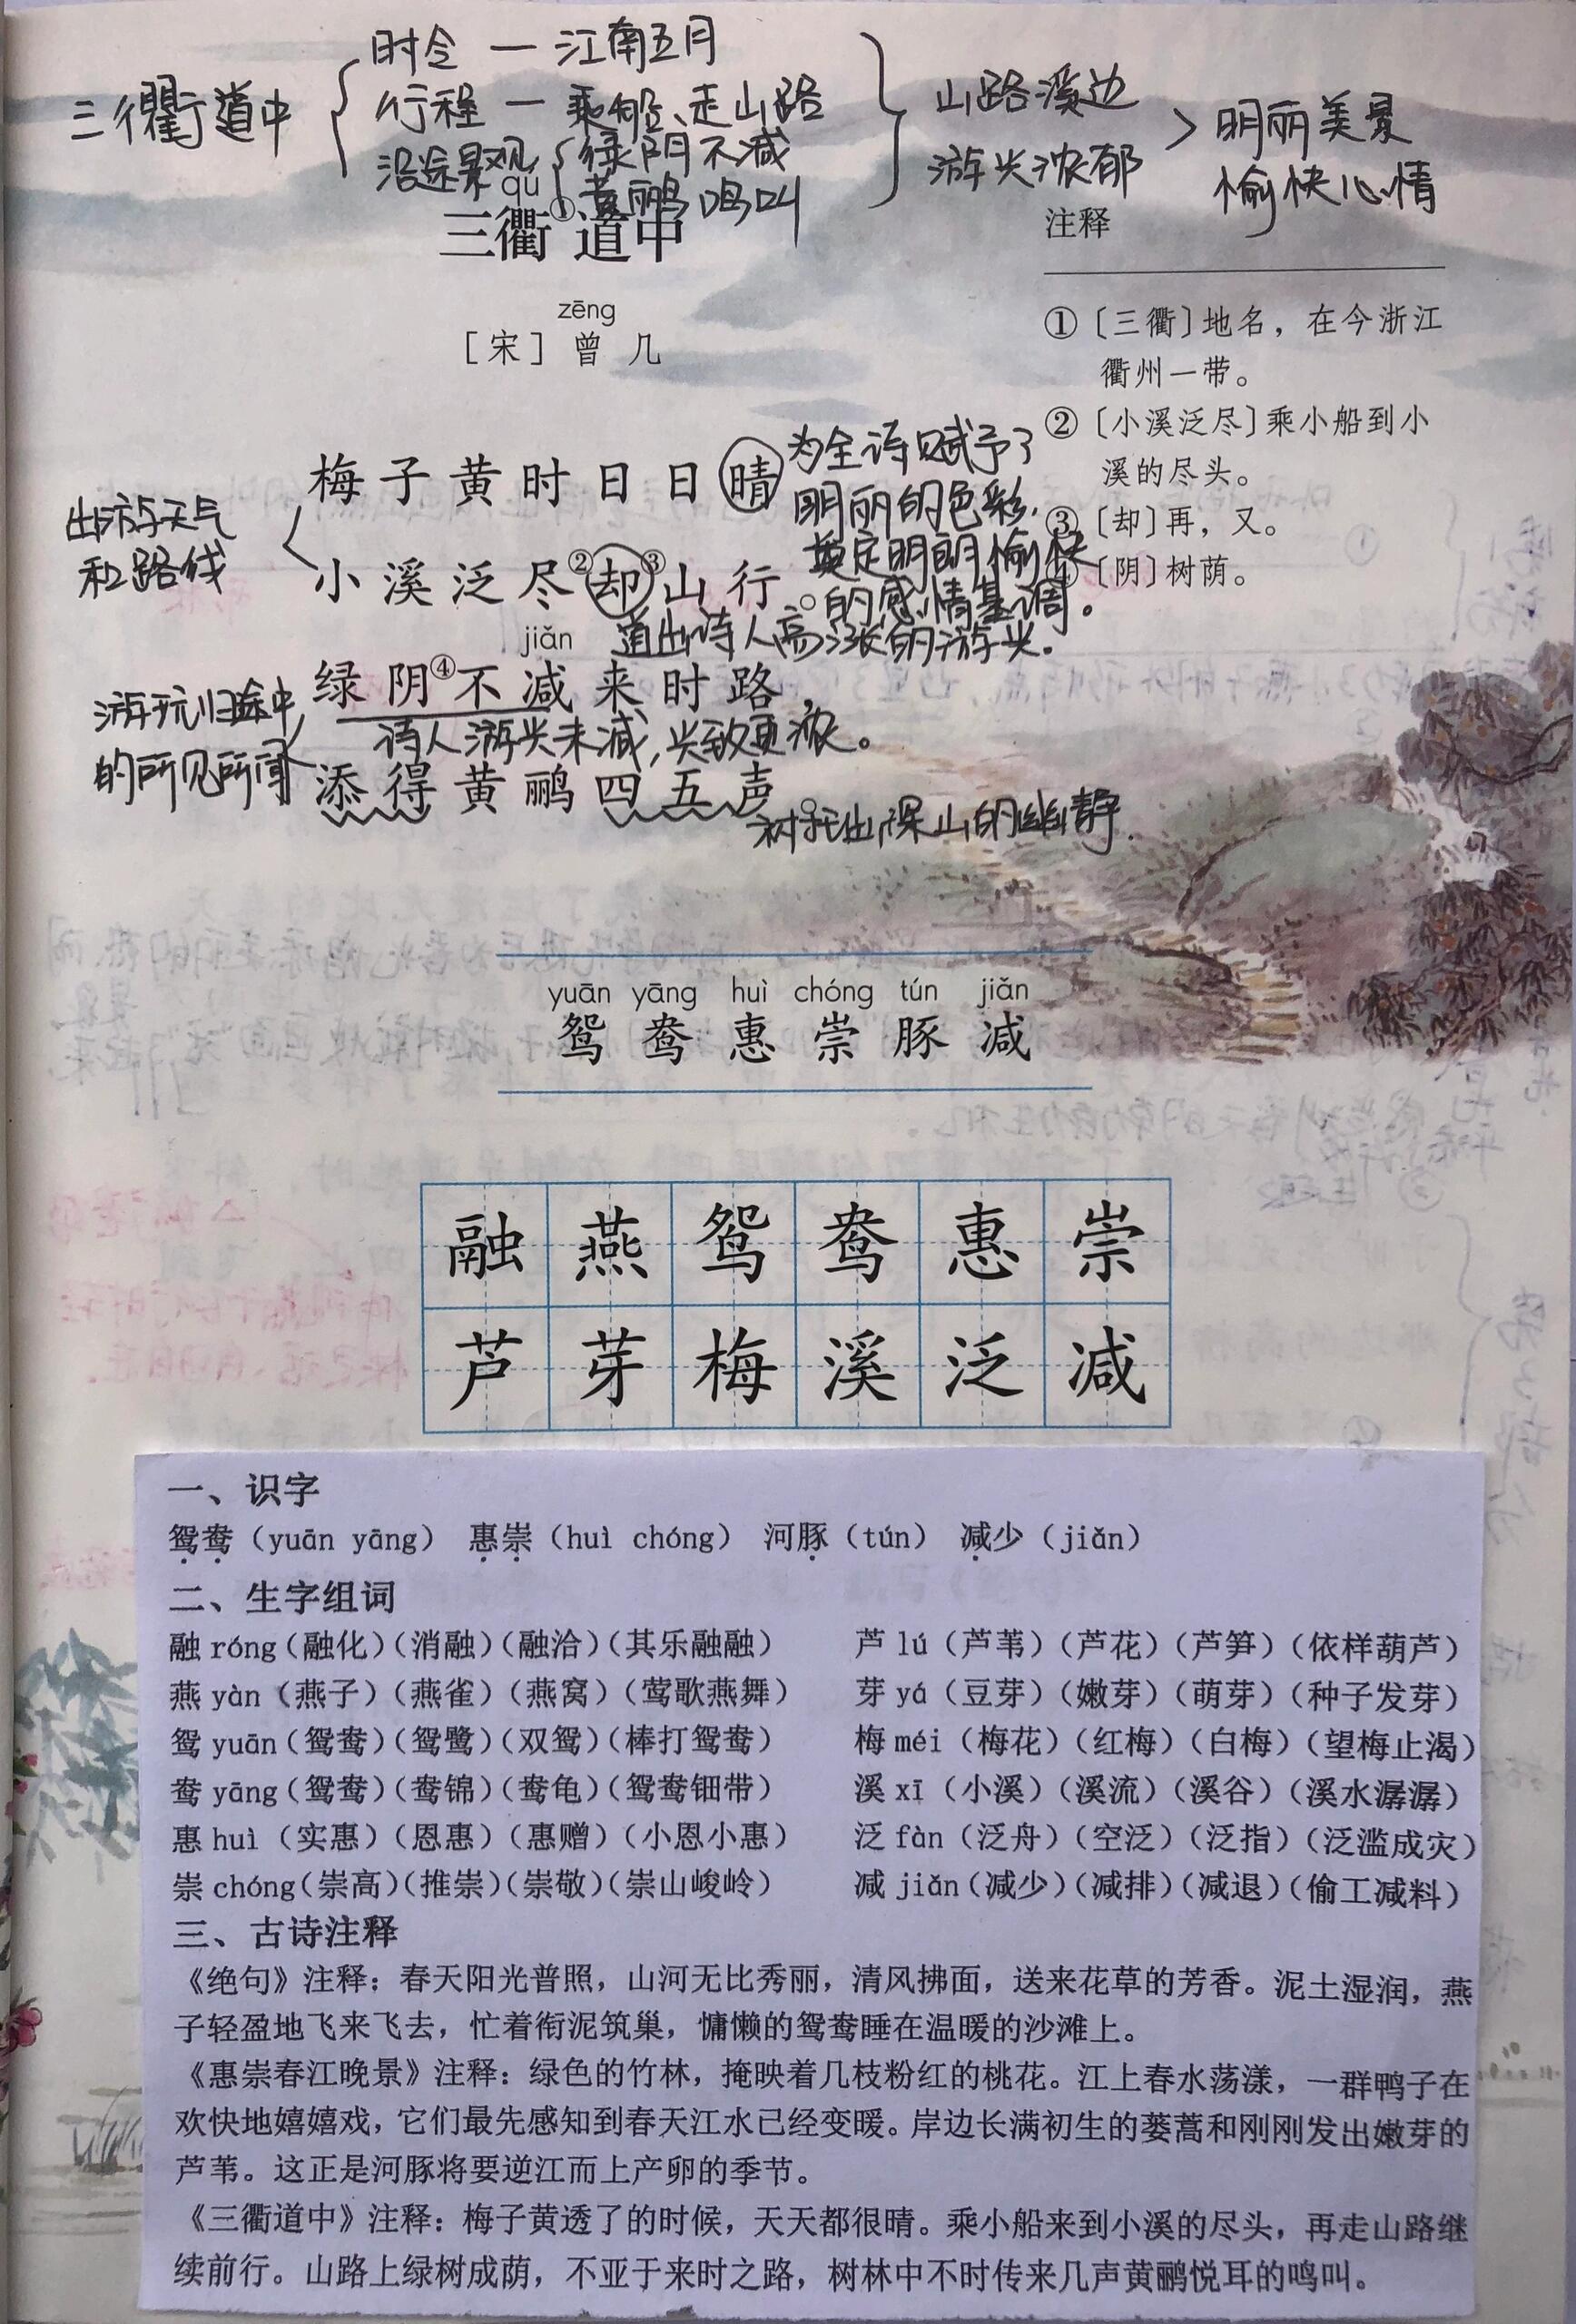 三衢道中
时令 — 江南五月
行程 — 乘船、走山路
沿途景观
绿阴不减
黄鹂鸣叫
山路溪边
游兴浓郁
明丽美景
愉快心情
qú
三衢①道中
zēng
［宋］曾几
出游天气
和路线
梅子黄时日日晴
为全诗赋予了
明丽的色彩，
奠定明朗愉快
的感情基调。
小溪泛尽②却③山行。
道出诗人高涨的游兴。
jiǎn
游玩归途中
的所见所闻
绿阴④不减来时路，
诗人游兴未减，兴致更浓。
添得黄鹂四五声。
衬托出深山的幽静.
注释
①〔三衢〕地名，在今浙江
衢州一带。
②〔小溪泛尽〕乘小船到小
溪的尽头。
③〔却〕再，又。
〔阴〕树荫。
yuān yāng huì chóng tún jiǎn
鸳 鸯 惠 崇 豚 减
融 燕 鸳 鸯 惠 崇
芦 芽 梅 溪 泛 减
一、识字
鸳鸯（yuān yāng） 惠崇（huì chóng） 河豚（tún） 减少（jiǎn）
二、生字组词
融 róng（融化）（消融）（融洽）（其乐融融） 芦 lú（芦苇）（芦花）（芦笋）（依样葫芦）
燕 yàn（燕子）（燕雀）（燕窝）（莺歌燕舞） 芽 yá（豆芽）（嫩芽）（萌芽）（种子发芽）
鸳 yuān（鸳鸯）（鸳鹭）（双鸳）（棒打鸳鸯） 梅 méi（梅花）（红梅）（白梅）（望梅止渴）
鸯 yāng（鸳鸯）（鸯锦）（鸯龟）（鸳鸯钿带） 溪 xī（小溪）（溪流）（溪谷）（溪水潺潺）
惠 huì（实惠）（恩惠）（惠赠）（小恩小惠） 泛 fàn（泛舟）（空泛）（泛指）（泛滥成灾）
崇 chóng（崇高）（推崇）（崇敬）（崇山峻岭） 减 jiǎn（减少）（减排）（减退）（偷工减料）
三、古诗注释
《绝句》注释：春天阳光普照，山河无比秀丽，清风拂面，送来花草的芳香。泥土湿润，燕
子轻盈地飞来飞去，忙着衔泥筑巢，慵懒的鸳鸯睡在温暖的沙滩上。
《惠崇春江晚景》注释：绿色的竹林，掩映着几枝粉红的桃花。江上春水荡漾，一群鸭子在
欢快地嬉嬉戏，它们最先感知到春天江水已经变暖。岸边长满初生的蒌蒿和刚刚发出嫩芽的
芦苇。这正是河豚将要逆江而上产卵的季节。
《三衢道中》注释：梅子黄透了的时候，天天都很晴。乘小船来到小溪的尽头，再走山路继
续前行。山路上绿树成荫，不亚于来时之路，树林中不时传来几声黄鹂悦耳的鸣叫。